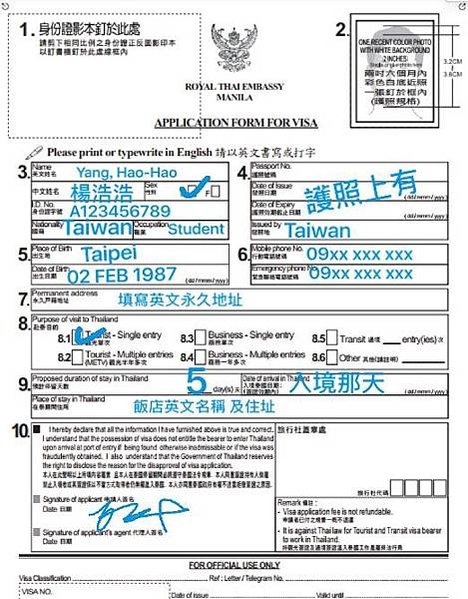 1. 身份證影本釘於此處
請剪下相同比例之身份證正反面影印本
以釘書機釘於此處線框內
ROYAL THAI EMBASSY
MANILA
APPLICATION FORM FOR VISA
2.
ONE RECENT COLOR PHOTO
WITH WHITE BACKGROUND
2 INCHES
兩吋六個月內
彩色白底近照
一張釘於框內
(護照規格)
3.2CM
3.8CM
Please print or typewrite in English 請以英文書寫或打字
3. Name 英文姓名 Yang, Hao-Hao
中文姓名 楊浩浩 Sex 性別 F
I.D. No. 身份證字號 A123456789
Nationality 國籍 Taiwan Occupation 職業 Student
4. Passport No. 護照號碼
Date of Issue 發照日期 (dd/mmm/yyy)
護照上有
Date of Expiry 護照效期截止日期 (dd/mmm/yyy)
Issued by 發照地 Taiwan
5. Place of Birth 出生地 Taipei
Date of Birth 出生日期 02 FEB 1987 (dd/mmm/yyy)
6. Mobile phone No. 行動電話號碼 09xx xxx xxx
Emergency phone No. 緊急聯絡電話號碼 09xx xxx xxx
7. Permanent address 永久戶籍地址 填寫英文永久地址
8. Purpose of visit to Thailand
赴泰目的
8.1 Tourist - Single entry 觀光單次
8.3 Business - Single entry 商務單次
8.5 Transit 過境 entry(ies) 次
8.2 Tourist - Multiple entries (METV) 觀光半年多次
8.4 Business - Multiple entries 商務一年多次
8.6 Other 其他(請註明)
9. Proposed duration of stay in Thailand 預計停留天數 5 day(s) 天
Date of arrival in Thailand 入境泰國日期: 入境那天
(dd/mmm/yyy)
Place of stay in Thailand
在泰期間住所 飯店英文名稱 及住址
10. I hereby declare that all the information I have furnished above is true and correct.
I understand that the possession of visa does not entitle the bearer to enter Thailand
upon arrival at port of entry if being found otherwise inadmissible or if the visa was
fraudulently obtained. I also understand that the Government of Thailand reserves
the right to disclose the reason for the disapproval of visa application.
Signature of applicant 申請人簽名
Date 日期
Signature of applicant's agent 代理人簽名
Date 日期
旅行社蓋章處
旅行社代碼
Remark 備註 :
- Visa application fee is not refundable.
申請者已付之規費一概不退還
- It is against Thai law for Tourist and Transit visa bearer
to work in Thailand.
持觀光簽證及過境簽證進入泰國工作是屬違法行為
FOR OFFICIAL USE ONLY
Visa Classification Ref : Letter / Telegram No.
VISA NO. Date of issue Valid until